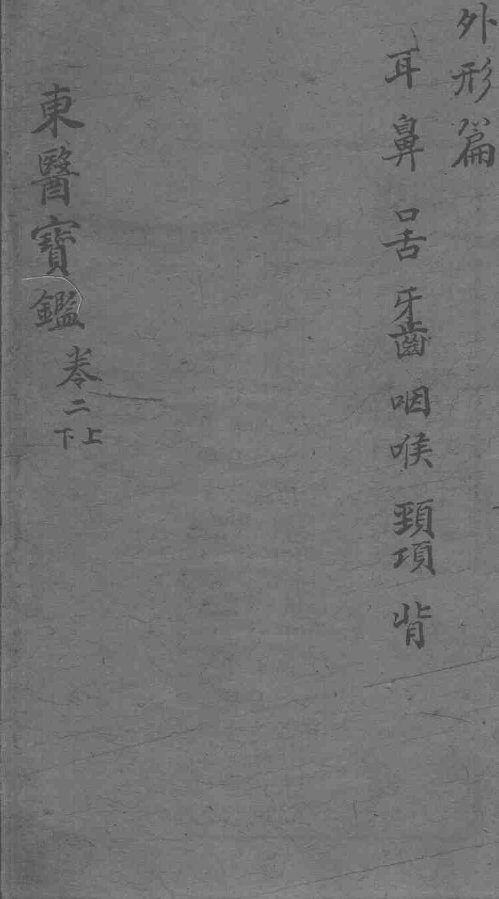 外形篇
耳 鼻 口舌 牙齒 咽喉 頸項 背
東醫寶鑑 卷二 上下